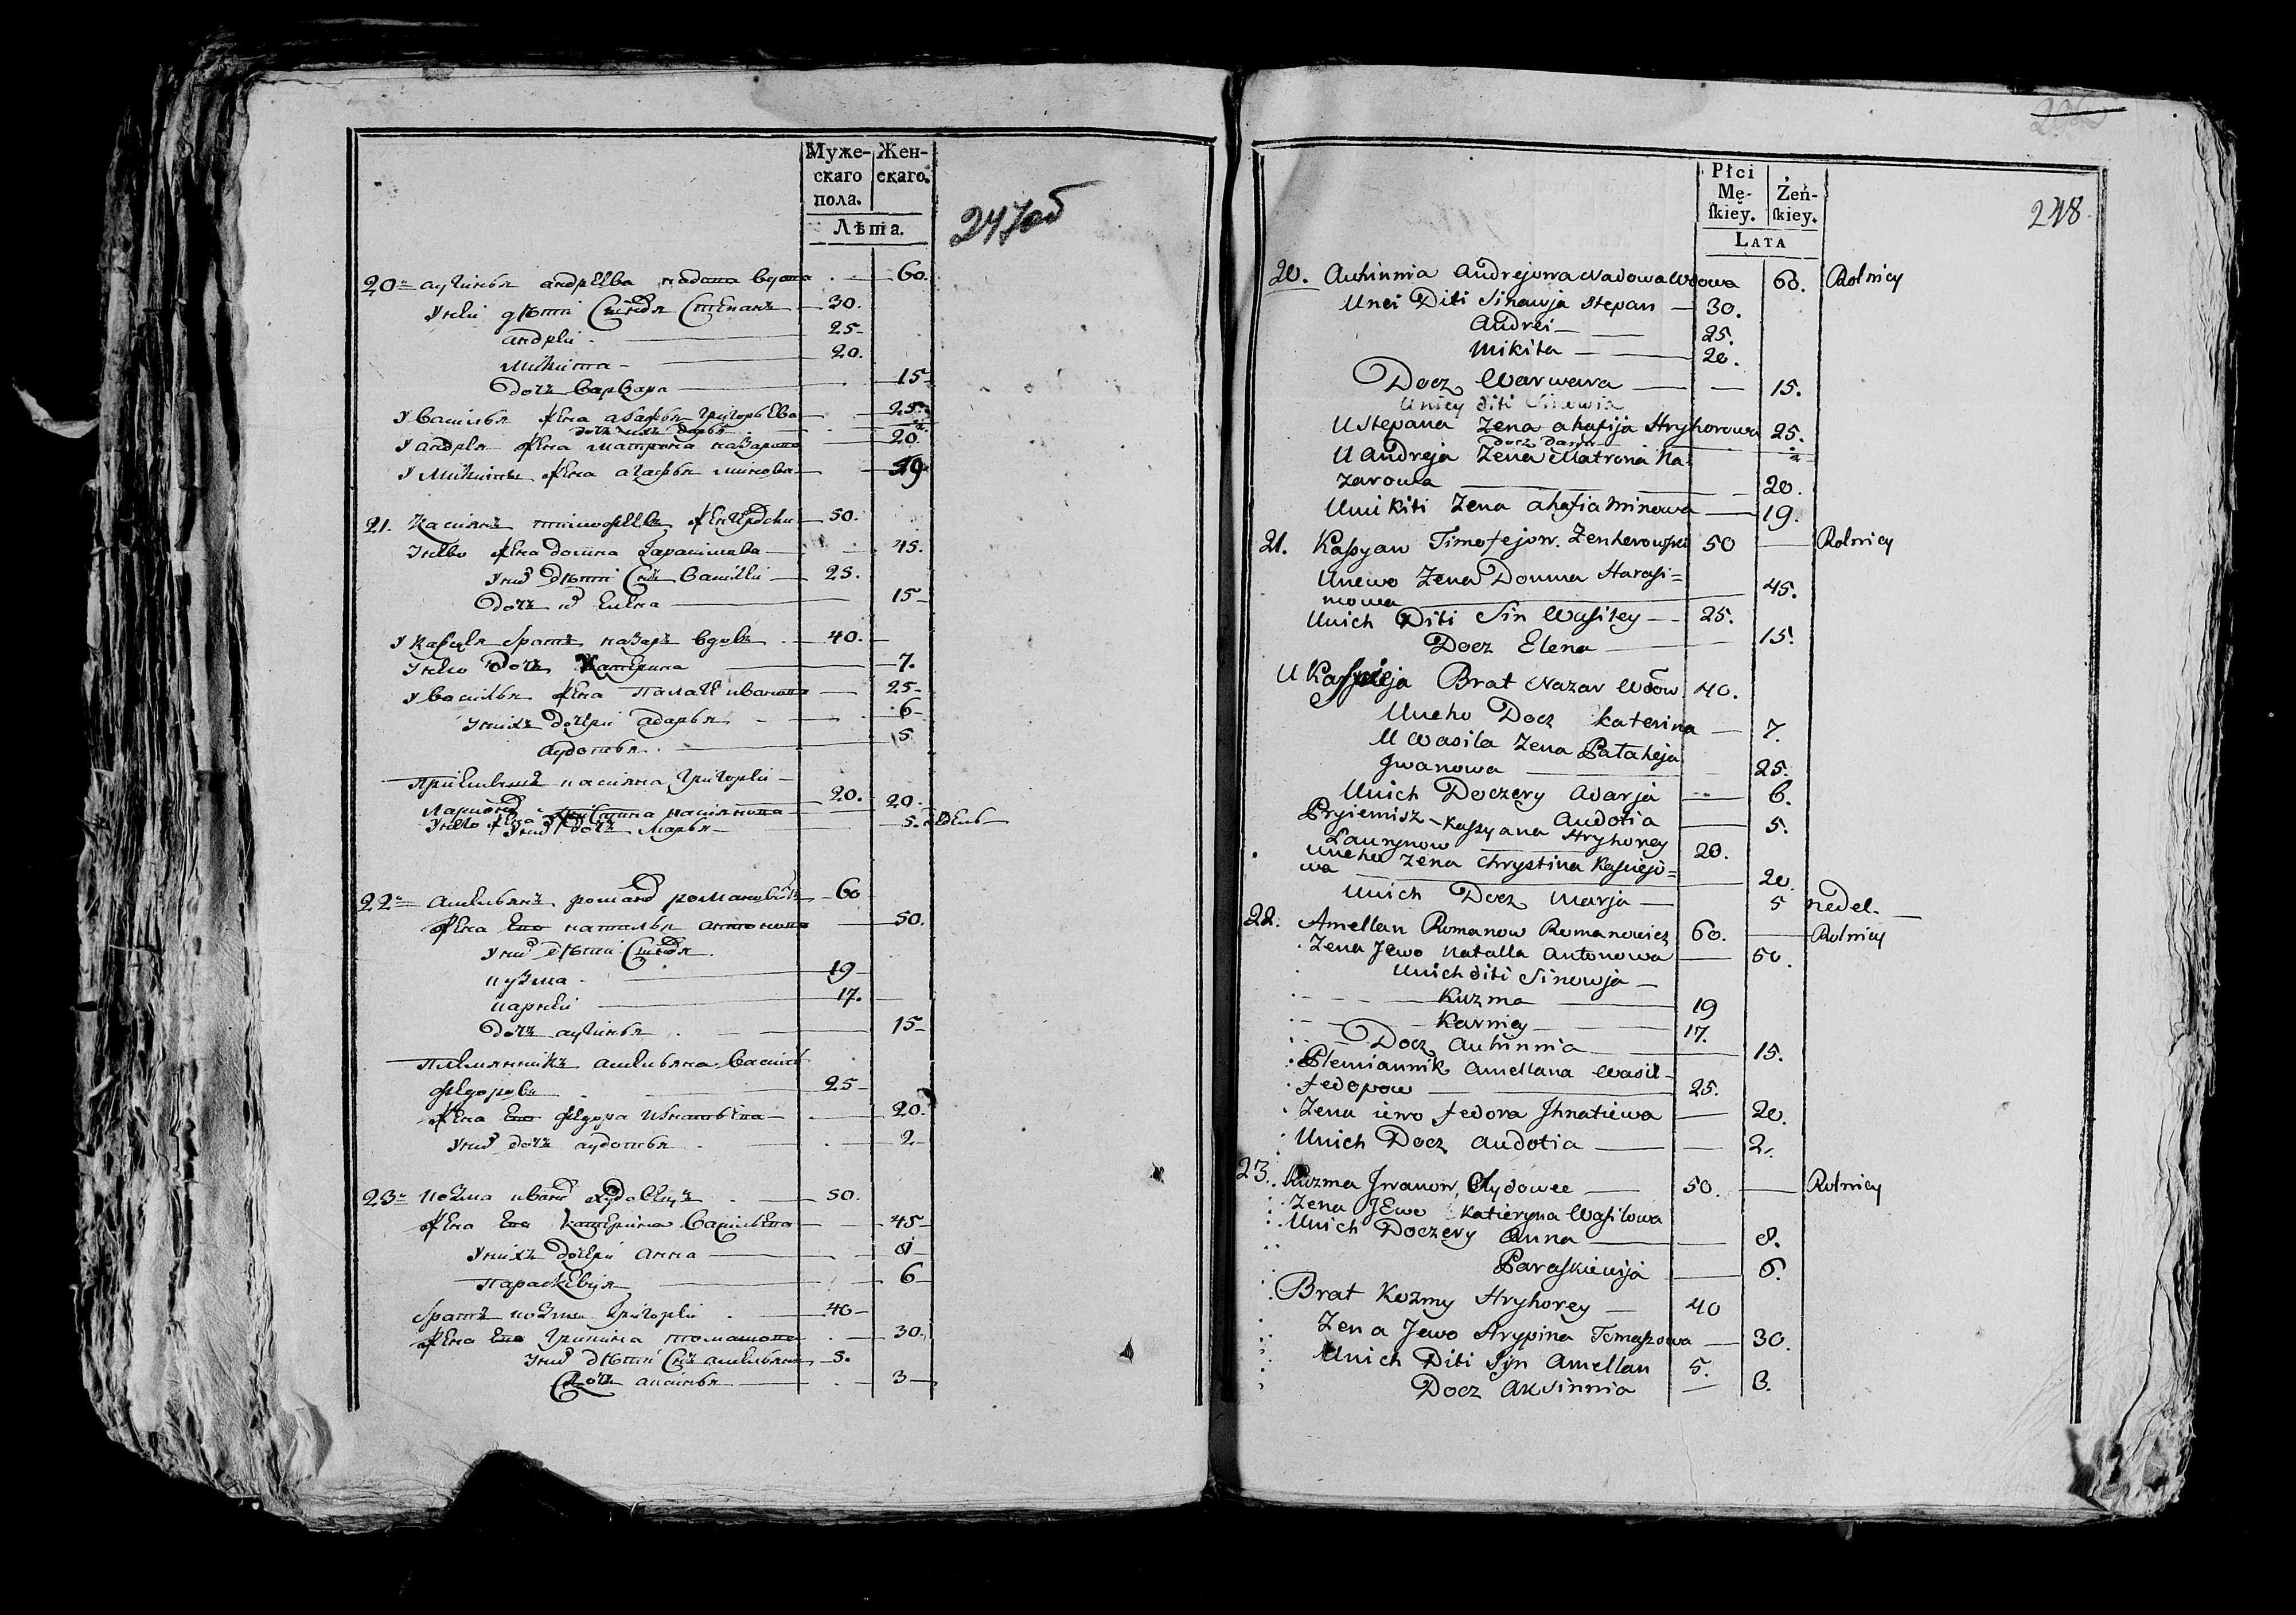 Муже-
скаго
пола.
Жен-
скаго.
Лѣта.
247об
20 аугинья андреева вдова 60.
У неи дѣти Степанъ 30.
андрѣи 25
микита 20.
дочь варвара 15
У василья жена агафья григорьева 25
дочь ихъ дарья 2.
У андрея жена матрона назарова 20
У микиты жена агафья минова 19
21. Касиянъ тимофеевъ 50.
У нево жена домна гарасимова 45.
У них дѣти Снъ василеи 25.
дочь елена 15
У касыяна братъ назаръ вдовъ 40.
У нево дочь Катерина 7.
У василья жена палагея иванова 25
У нихъ дочери адарья 6
аудотья 5
приемышъ касияна григореи
20. 20.
У них дочь марья 5. недель
22 амельянъ романов романовичъ 60
жена ево наталья антонова 50.
У них дѣти
кузма 19
карнеи 17.
дочь аугинья 15
племянникъ амельяна василь
федоровъ 25
жена ево федора игнатьева 20.
У них дочь аудотья 2
23 козма иванов 50.
жена ево катерина васильева 45
У нихъ дочери анна 8
параскевия 6
братъ козмы григореи 40
жена ево грипина томашова 30.
У них дѣти Снъ амельянъ 5.
дочь аксинья 3
Płci
Mę-
ſkiey.
Żeń-
ſkiey.
LATA
248
20. Auhinnia Andrejowa Nadowa Wdowa 60. Rolnicy
Unei Diti Sinowja Stepan 30.
Andrei 25.
Mikita 20.
Docz Warwara 15.
Unicy diti Sinowia
U Stepana Zena ahafija Hryhorowa 25.
docz Daria 2
U Andreja Zena Matrona Na
zarowa 20.
U mikiti Zena ahafia minowa 19.
21. Kaſyan Timofejow. Zenherowſki 50 Rolnicy
Unewo Zena Domna Haraſi=
mowa 45.
Unich Diti Sin Waſiley 25.
Docz Elena 15.
U Kaſpieja Brat Nazar Wdow 40.
Uneho Docz Katerina 7.
U Wasila Zena Pałaheja
Jwanowa 25.
Unich Doczery Adarja 6.
Audotia 5.
Pryiemisz Kaſsyana Hryhorey
Laurynow 20.
Uneho Zena Chrystina Kaſiejo=
wa 20.
Unich Docz Marja 5 nedel.
22. Amellan Romanow Romanowicz 60. Rolnicy
Zena Jewo Natalla Antonowa 50.
Unich diti Sinowja
Kuzma 19
Karniey 17.
Docz Auhinnia 15.
Plemiannik Amellana Wasil
fedorow 25.
Zena iewo fedora Jhnatiewa 20.
Unich Docz Audotia 2.
23. Kuzma Jwanow, Chydowec 50. Rolnicy
Zena JEwo Katieryna Waſilowa
Unich Doczery Anna 8.
Paraſkiewija 6.
Brat Kozmy Hryhorey 40
Zena Jewo Hrypina Tomaſzowa 30.
Unich Diti Syn Amellan 5.
Docz Aksinnia 3.